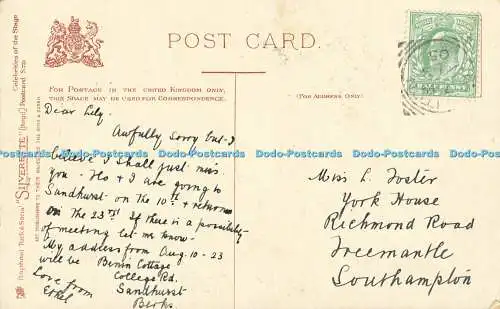 POST CARD.
FOR POSTAGE IN THE UNITED KINGDOM ONLY,
THIS SPACE MAY BE USED FOR CORRESPONDENCE.
(FOR ADDRESS ONLY)
Celebrities of the Stage
"SILVERETTE" (Regd.) Postcard
Raphael Tuck & Sons'
HALFPENNY
Dear Lily,
Awfully Sorry but I
believe I shall just miss
you - Flo & I are going to
Sandhurst on the 10th & return
on the 23rd. If there is a possibility
of meeting let me know.
My address from Aug. 10 - 23
will be Benin Cottage
College Rd.
Sandhurst
Berks.
Love from
Ethel
Miss L. Foster
York House
Richmond Road
Freemantle
Southampton
Dodo-Postcards Dodo-Postcards Dodo-Postcards Dodo-Postcards Dodo-Postcards Dodo-Postcards